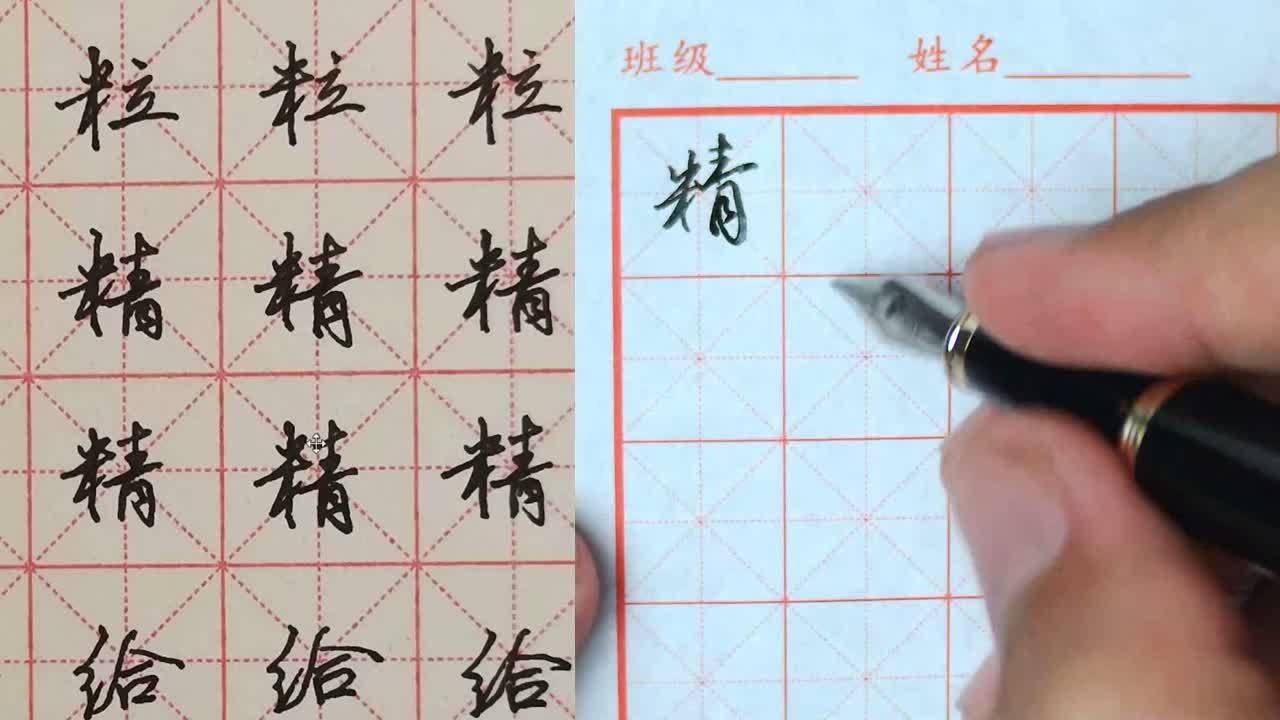 粒 粒 粒
精 精 精
精 精 精
给 给 给
班级 姓名
精